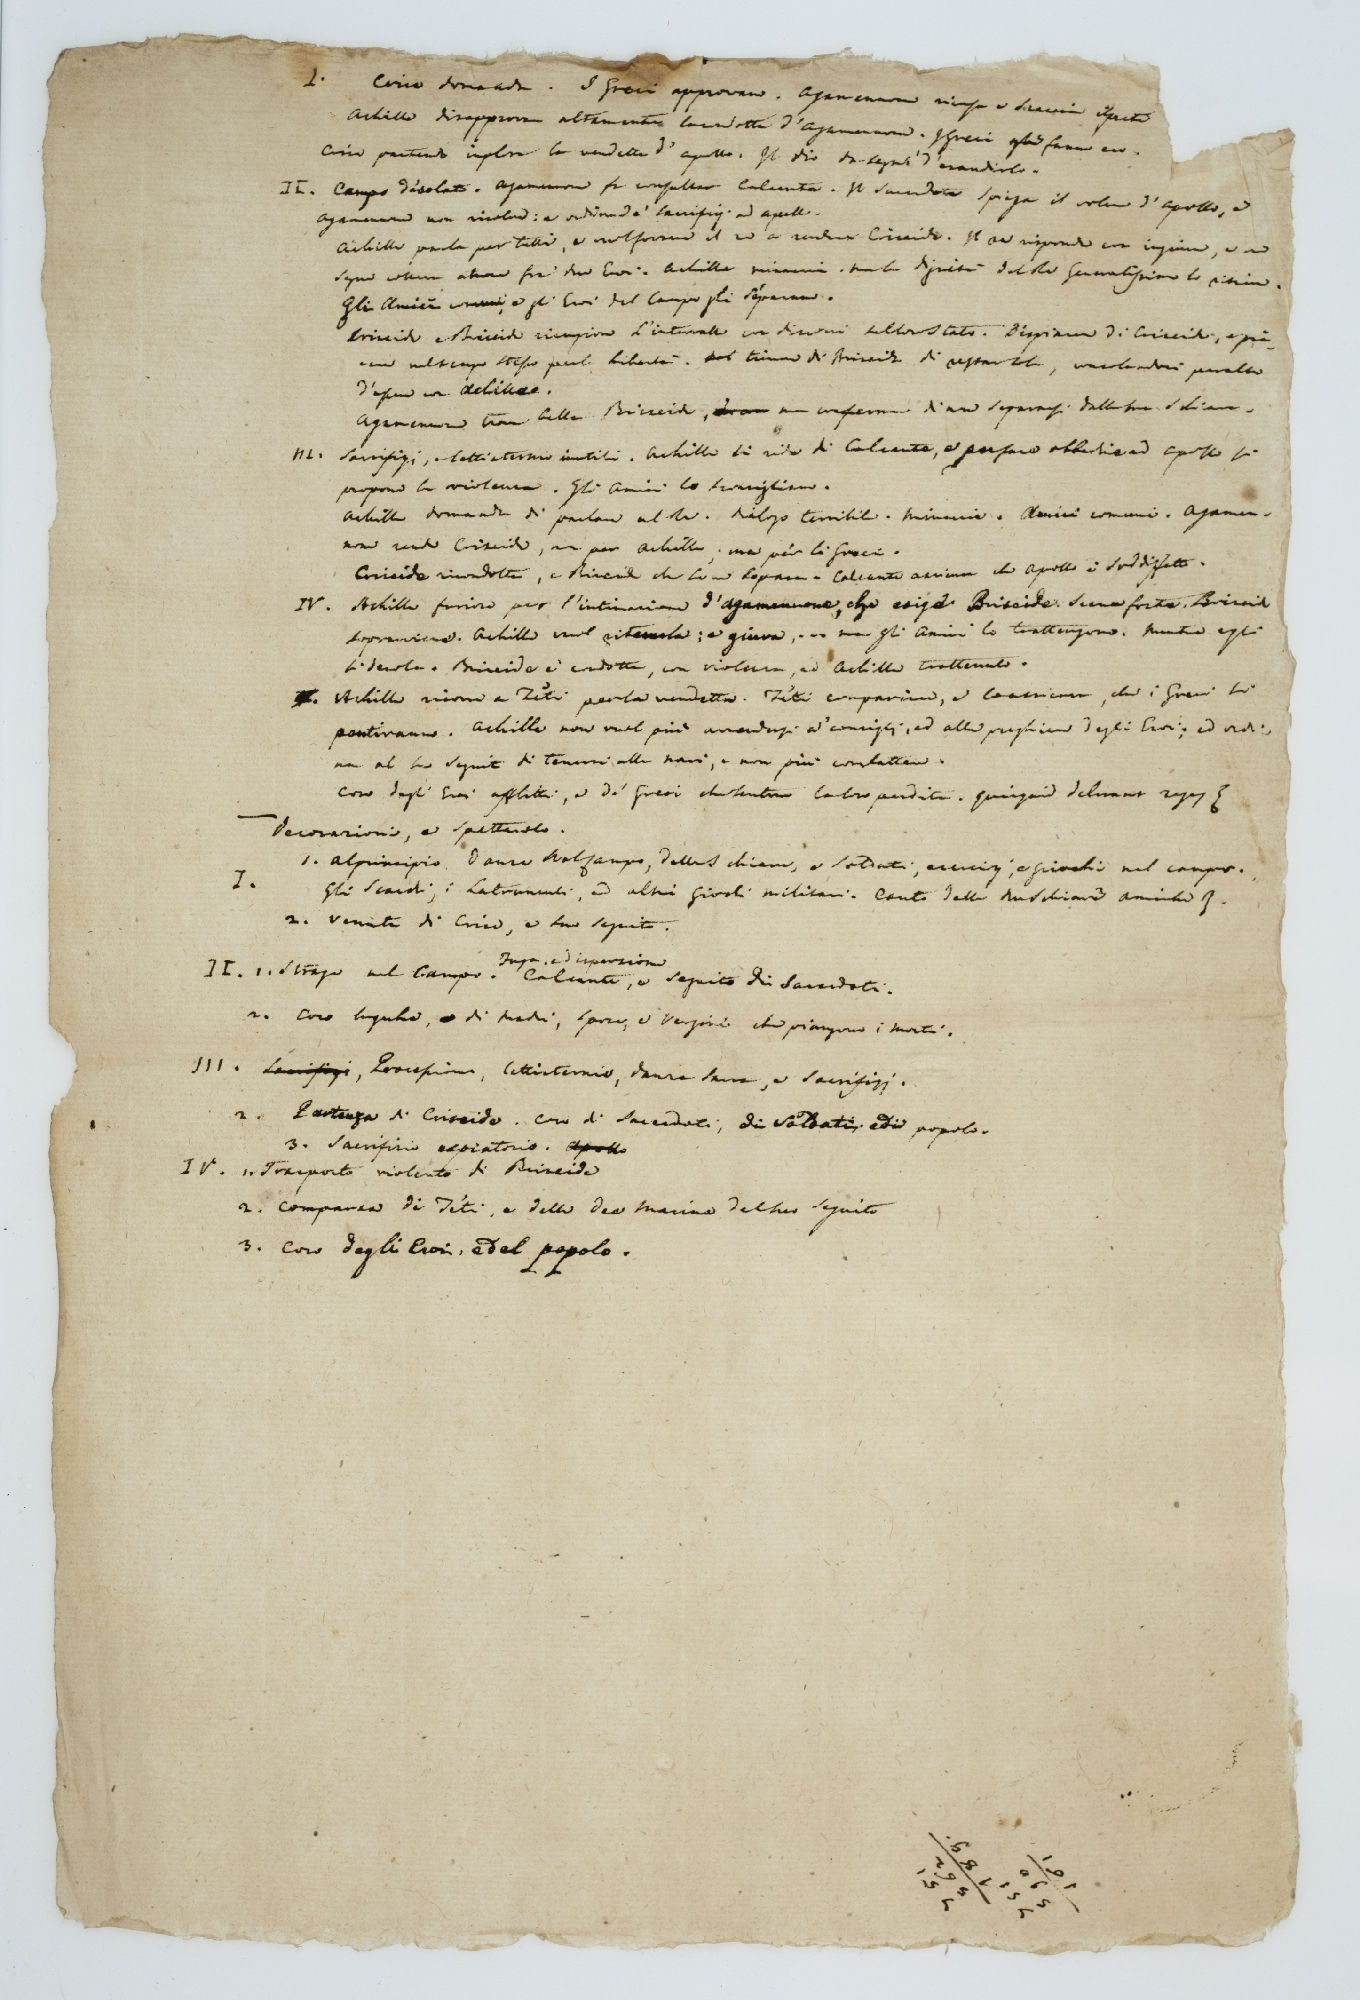 I. Criso domanda. I Greci approvano. Agamennone ricusa e scaccia
Achille disapprova altamente la condotta d'Agamennone. I Greci fanno eco.
Criso partendo inplora la vendetta d'apollo. Il dio dà segni d'esaudirlo.
II. Campo désolato. Agamennone fa consultar Calcante. Il Sacerdote spiega il volere d'Apollo, e
Agamennone non risolve: e ordina de' Sacrifizj ad apollo.
Achille parla per tutti, e vuol forzare il re a rendere Criseide. Il re risponde con ingiurie, e ne
segue collera atroce fra' due Eroi. Achille minaccia. ma la dignità del Re Generalissimo lo ritiene.
Gli Amici comuni, e gli Eroi del Campo gli séparano.
Criseide e Briseide riempiono l'intervallo con discorsi sul loro stato. Dispiacere di Criseide, e pia-
cere nel tempo stesso per la libertà. timore di Briseide di restar sola, consolandosi peraltro
d'essere con Achille.
Agamennone trova bella Briseide, ma conferma di non separarsi dalla sua schiava.
III. Sacrifizj, e lettisternio inutili. Achille si ride di Calcante, e per fare obbedire ad apollo si
propone la violenza. Gli Amici lo sconsigliano.
Achille domanda di parlare al Re. Dialogo terribile. Minaccie. Amici comuni. Agamen-
none rende Criseide, non per Achille, ma per li Greci.
Criseide ricondotta, e Briseide che se ne separa. Calcante assicura che Apollo è soddisfatto.
IV. Achille furioso per l'intimazione d'Agamennone, che esige Briseide. Scena forte. Briseide
sopravviene. Achille vuol ritenerla; e giura, ... ma gli Amici lo trattengono. Mentre egli
si desola. Briseide è condotta, con violenza, ed Achille trattenuto.
Achille ricorre a Téti per la vendetta. Téti comparisce, e lo assicura, che i Greci si
pentiranno. Achille non vuol più arrendersi a' consigli, ed alle preghiere degli Eroi; ed ordi-
na al suo seguito di tenersi alle navi, e non più combattere.
Coro degli Eroi afflitti, e de' Greci che sentono la loro perdita. quicquid delirant reges
Decorazioni, e Spettacolo.
I. 1. Al principio. Danze nel Campo, delle Schiave, e Soldati, esercizj, e giuochi nel campo.
Gli Scacchi, i Latrunculi, ed altri giochi militari. Canto delle due Schiave amiche
2. Venuta di Criso, e suo seguito.
II. 1. Strage nel Campo. Fuga, e dispersione Calcante, e seguito di Sacerdoti.
2. Coro lugubre, e di Madri, spose, e Vergini che piangono i morti.
III. Sacrifizj, Processione, lettisternio, danza sacra, e Sacrifizj.
2. Partenza di Criseide. Coro di Sacerdoti, di Soldati, e di popolo.
3. Sacrifizio espiatorio. Apollo
IV. 1. Trasporto violento di Briseide
2. Comparsa di Téti, e delle dee Marine del suo seguito
3. Coro degli Eroi, e del popolo.